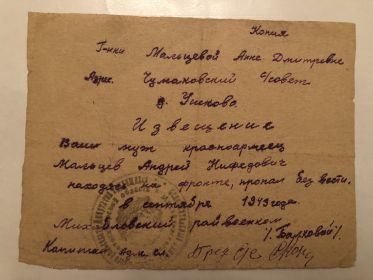 Копия
Г-нки Мальцевой Анне Дмитревне
Адрес. Чумаковский С/совет
д. Усково
Извещение
Ваш муж красноармеец
Мальцев Андрей Нифодович
находясь на фронте, пропал без вести.
в сентябре 1943 года.
Михайловский райвоенком
Капитан адм. сл. /Балковой/.